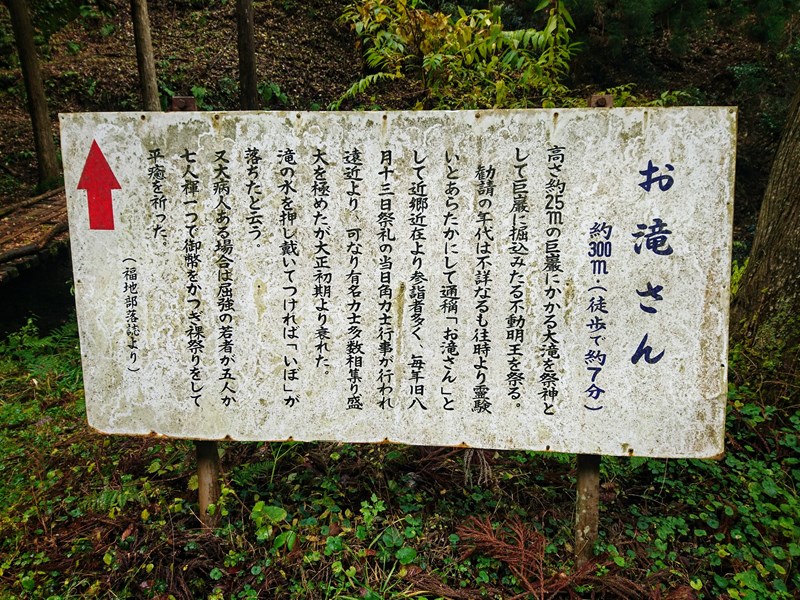 お滝さん
約300m(徒歩で約7分)
高さ約25mの巨巌にかかる大滝を祭神と
して巨巌に掘込みたる不動明王を祭る。
勧請の年代は不詳なるも往時より霊験
いとあらたかにして通稱「お滝さん」と
して近郷近在より参詣者多く、毎年旧八
月十三日祭礼の当日角力士行事が行われ
遠近より、可なり有名力士多数相集り盛
大を極めたが大正初期より衰れた。
滝の水を押し戴いてつければ「いぼ」が
落ちたと云う。
又大病人ある場合は屈強の若者が五人か
七人褌一つで御幣をかつぎ裸祭りをして
平癒を祈った。
(福地部落誌より)